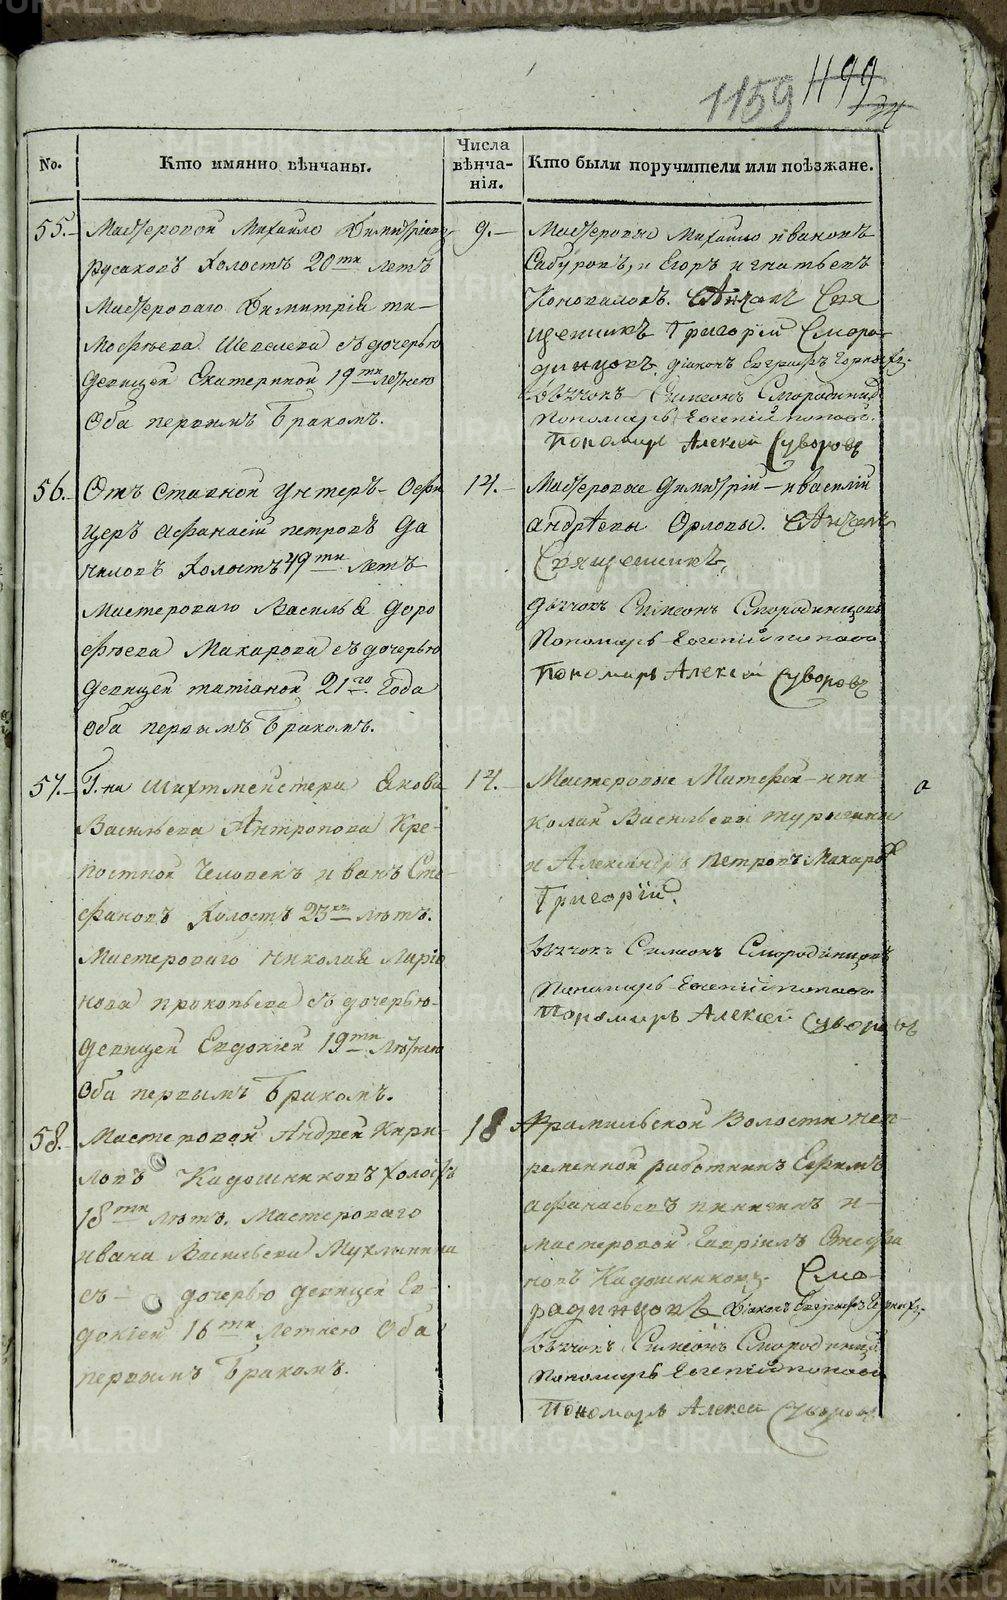 1159 1199
№. Кто имянно вѣнчаны. Числа вѣнчанія. Кто были поручители или поѣзжане.
55. Мастеровой Михайло Димитріевъ
Русаковъ холостъ 20ти летъ
Мастероваго Димитрія ти-
мофѣева Шевелева съ дочерью
девицей Екатериной 19ти летнею
Оба первымъ бракомъ.
9.
Мастеровые Михайло Ивановъ
Сабуровъ, и Егоръ Игнатьевъ
Коноваловъ. Свя
щенникъ Григорій Сморо-
динцовъ діаконъ
Дьячокъ Симеонъ Смородинцо
Пономарь Евгеній поповъ.
Пономарь Алексей Суворовъ
56. Отъ ставной Унтеръ-Офи
церъ Афанасій петровъ Да
ниловъ холостъ 49ти летъ
мастероваго Василья Доро
фѣева Макарова съ дочерью
девицей татіаной 21го года
Оба первымъ бракомъ.
14.
Мастеровые Димитрій и василій
андрѣевы Орловы.
Священникъ,
Дьячокъ Симеонъ Смородинцовъ
Пономарь Евгеній поповъ
Пономарь Алексей Суворовъ
57. Г.на Шихтмейстера Якова
Васильева Антропова Кре-
постной человекъ иванъ Сте-
фановъ холостъ 23хъ лѣтъ.
Мастероваго Николая Ларіо
нова прокопьева съ дочерью
девицей Евдокіей 19ти лѣтнею
Оба первымъ бракомъ.
14.
Мастеровые Матѳей и ни
колай Васильевы
и Александръ петровъ Макаровъ
Григорій.
Дьячокъ Симеонъ Смородинцовъ
Пономарь Евгеній поповъ
Пономарь Алексей Суворовъ
58. Мастеровой Андрей Кири-
ловъ Кадошниковъ холостъ
18ти лѣтъ. Мастероваго
ивана Васильева Мухлынина
съ дочерью девицей Ев-
докіей 16ти Летнею Оба
первымъ бракомъ.
18
Арамильской Волости неп-
ременной работникъ Ефимъ
афанасьевъ и
мастеровой Гавріилъ Стефа
новъ Кадошниковъ. Смо-
родинцовъ Діаконъ
Дьячокъ Симеонъ Смородинцов
Пономарь Евгеній поповъ
Пономарь Алексей Суворовъ
METRIKI.GASO-URAL.RU